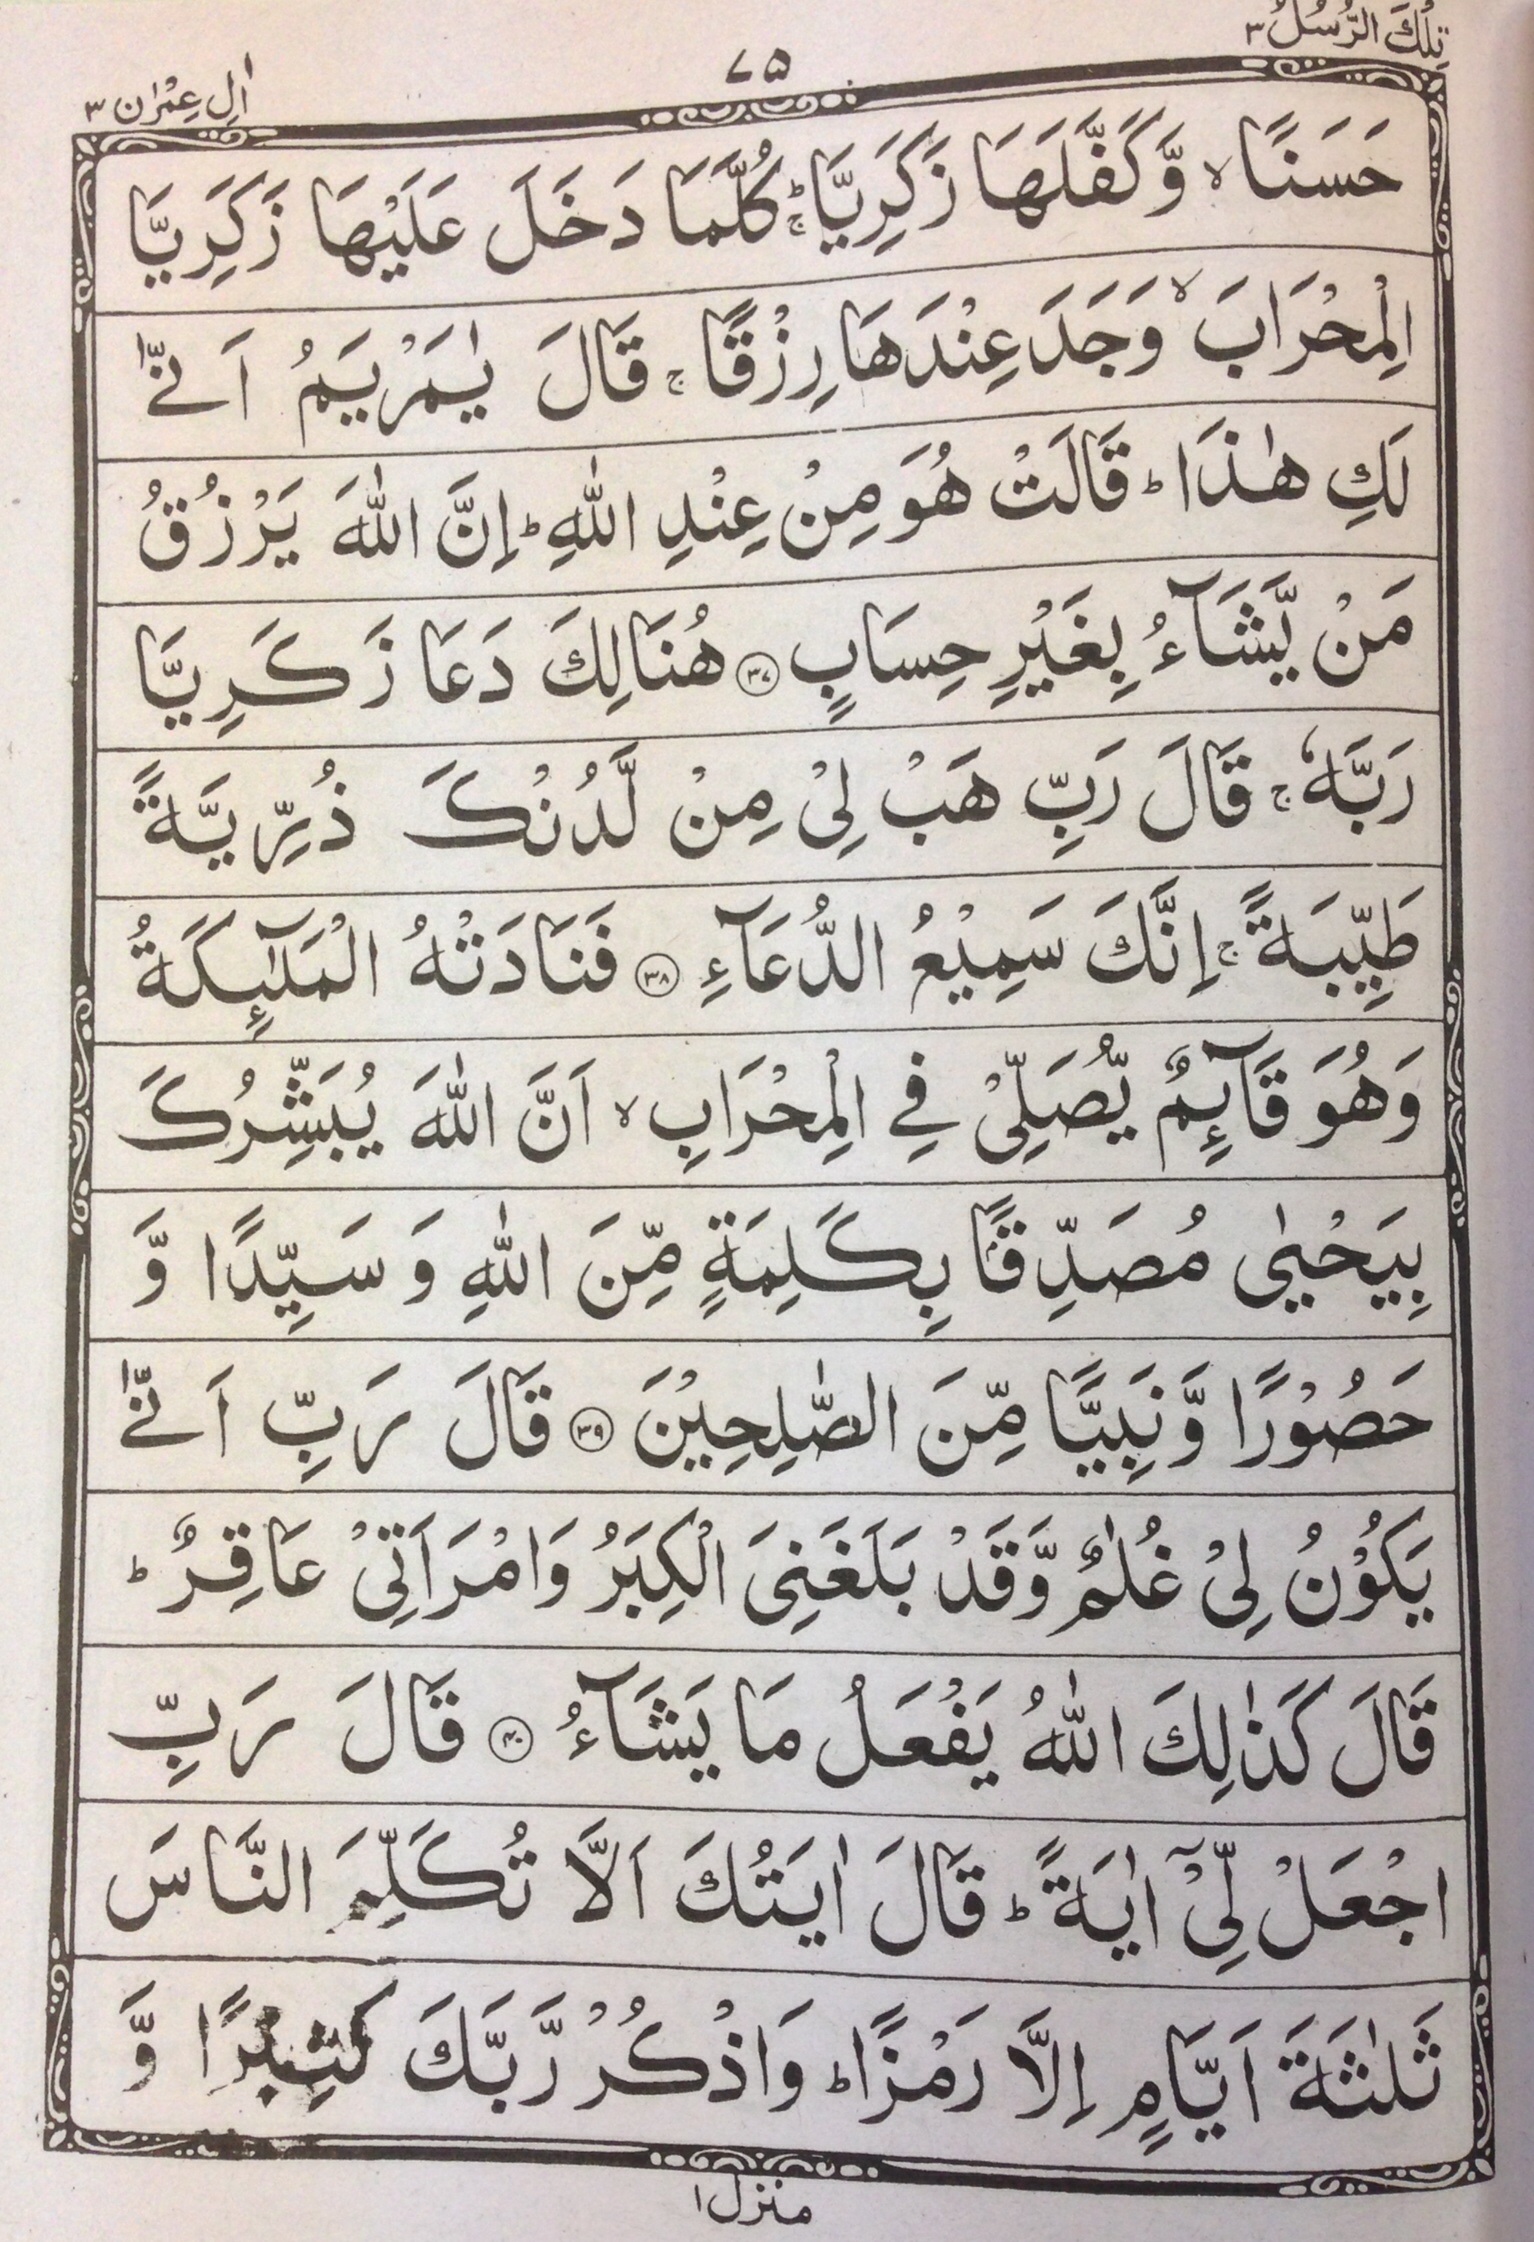 تِلْكَ الرُّسُلُ ٣
٧٥
اٰلِ عِمْرٰن ٣
حَسَنًا ۙ وَّكَفَّلَهَا زَكَرِيَّا ؕۚ كُلَّمَا دَخَلَ عَلَيْهَا زَكَرِيَّا
الْمِحْرَابَ ۙ وَجَدَ عِنْدَهَا رِزْقًا ۚ قَالَ يٰمَرْيَمُ اَنّٰى
لَكِ هٰذَا ؕ قَالَتْ هُوَ مِنْ عِنْدِ اللّٰهِ ؕ اِنَّ اللّٰهَ يَرْزُقُ
مَنْ يَّشَآءُ بِغَيْرِ حِسَابٍ ﴿٣٧﴾ هُنَالِكَ دَعَا زَكَرِيَّا
رَبَّهٗ ۚ قَالَ رَبِّ هَبْ لِىْ مِنْ لَّدُنْكَ ذُرِّيَّةً
طَيِّبَةً ۚ اِنَّكَ سَمِيْعُ الدُّعَآءِ ﴿٣٨﴾ فَنَادَتْهُ الْمَلٰٓئِكَةُ
وَهُوَ قَآئِمٌ يُّصَلِّىْ فِى الْمِحْرَابِ ۙ اَنَّ اللّٰهَ يُبَشِّرُكَ
بِيَحْيٰى مُصَدِّقًا بِكَلِمَةٍ مِّنَ اللّٰهِ وَ سَيِّدًا وَّ
حَصُوْرًا وَّنَبِيًّا مِّنَ الصّٰلِحِيْنَ ﴿٣٩﴾ قَالَ رَبِّ اَنّٰى
يَكُوْنُ لِىْ غُلٰمٌ وَّقَدْ بَلَغَنِىَ الْكِبَرُ وَامْرَاَتِىْ عَاقِرٌ ؕ
قَالَ كَذٰلِكَ اللّٰهُ يَفْعَلُ مَا يَشَآءُ ﴿٤٠﴾ قَالَ رَبِّ
اجْعَلْ لِّىْٓ اٰيَةً ؕ قَالَ اٰيَتُكَ اَلَّا تُكَلِّمَ النَّاسَ
ثَلٰثَةَ اَيَّامٍ اِلَّا رَمْزًا ؕ وَاذْكُرْ رَّبَّكَ كَثِيْرًا وَّ
منزل ١